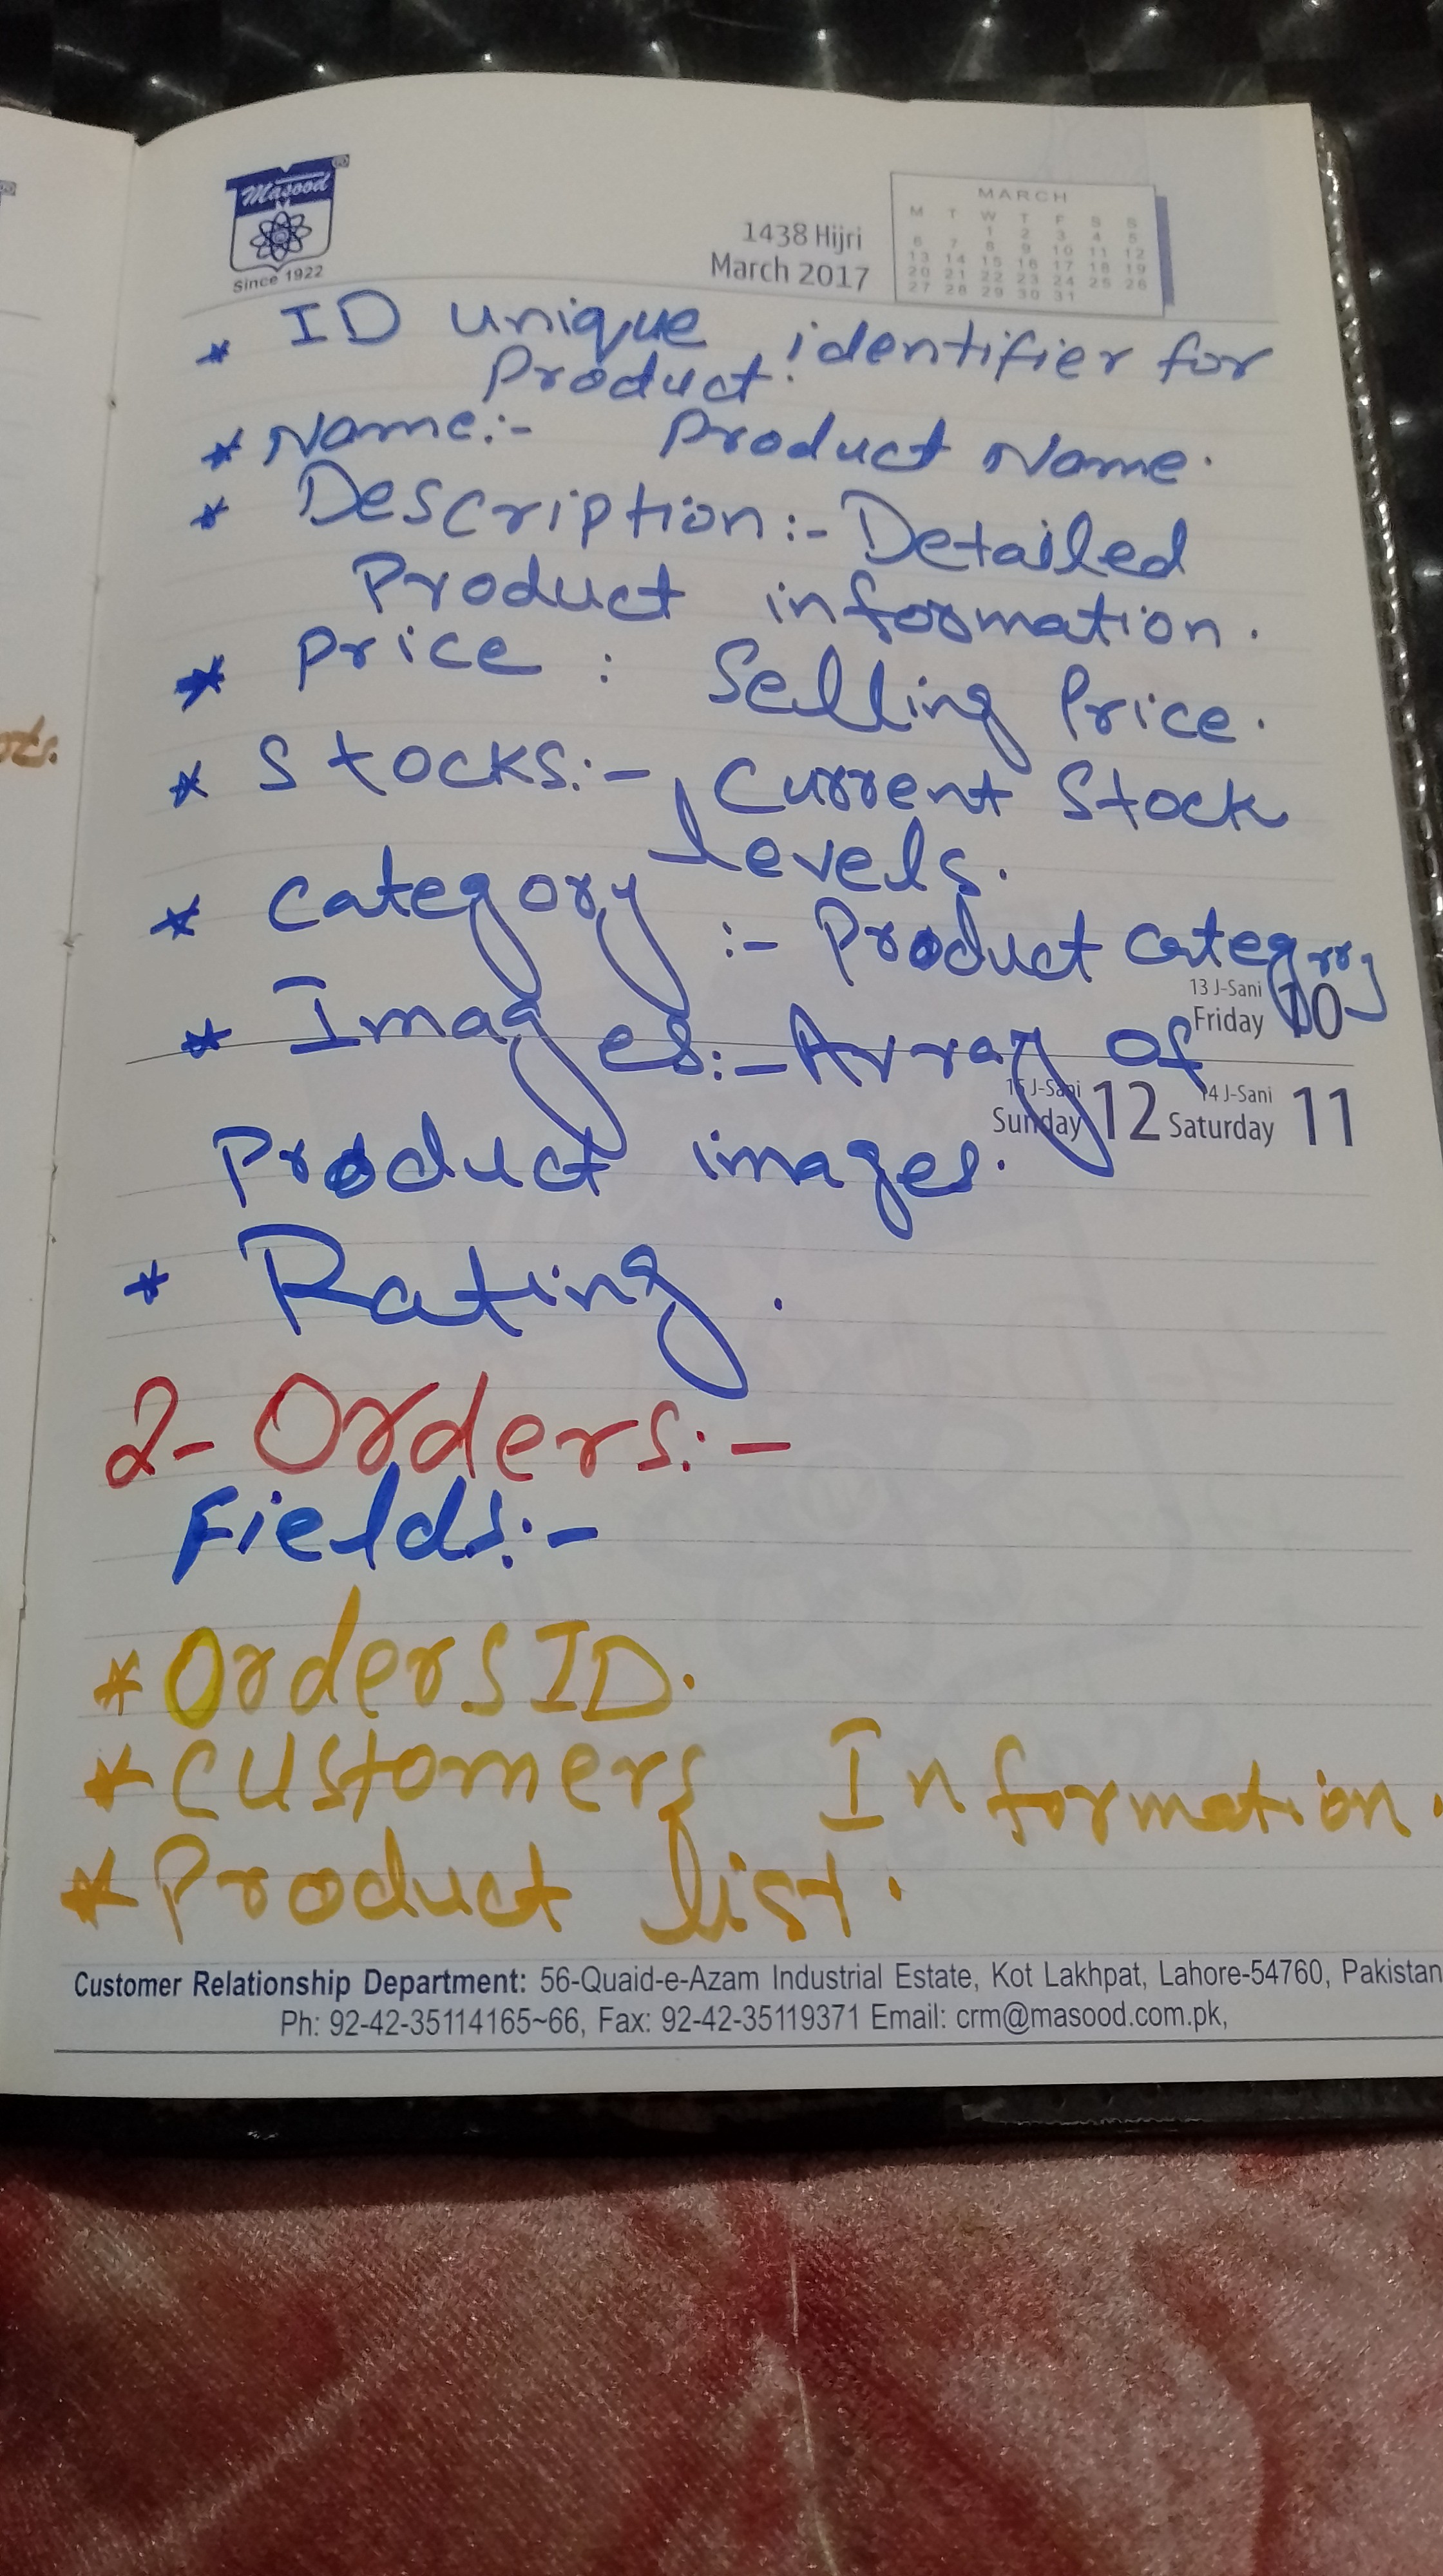 Masood
Since 1922
1438 Hijri
March 2017
MARCH
M T W T F S S
1 2 3 4 5
6 7 8 9 10 11 12
13 14 15 16 17 18 19
20 21 22 23 24 25 26
27 28 29 30 31
* ID unique identifier for
Product.
* Name:- Product Name.
* Description:- Detailed
Product information.
* Price: Selling Price.
* Stocks:- Current Stock
levels.
* Category :- Product Category
13 J-Sani
Friday 10
* Images:- Array of
15 J-Sani 14 J-Sani
Sunday 12 Saturday 11
Product images.
* Rating.
2- Orders:-
Fields:-
* Orders ID.
* Customers Information.
* Product list.
Customer Relationship Department: 56-Quaid-e-Azam Industrial Estate, Kot Lakhpat, Lahore-54760, Pakistan
Ph: 92-42-35114165~66, Fax: 92-42-35119371 Email: crm@masood.com.pk,